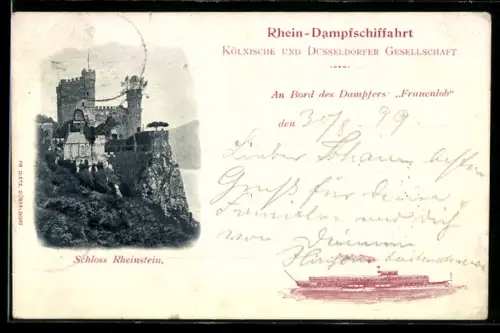 Rhein-Dampfschiffahrt
Kölnische und Düsseldorfer Gesellschaft
An Bord des Dampfers „Frauenlob“
den 30/8. 99
Lieber Johann besten
Gruß für deine
Familie und dich
von
Schloss Rheinstein.
FR. DIETZ, DÜSSELDORF